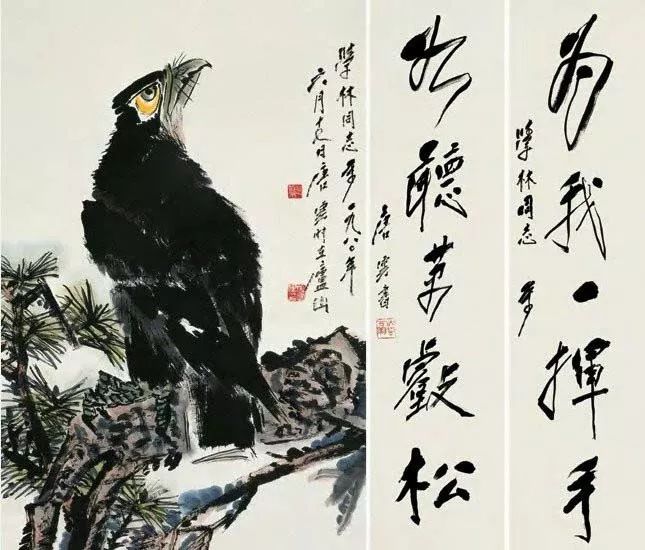 為我一揮手
學林同志
如聽萬壑松
唐雲書
學林同志 一九八〇年
六月十七日唐雲時在廬山